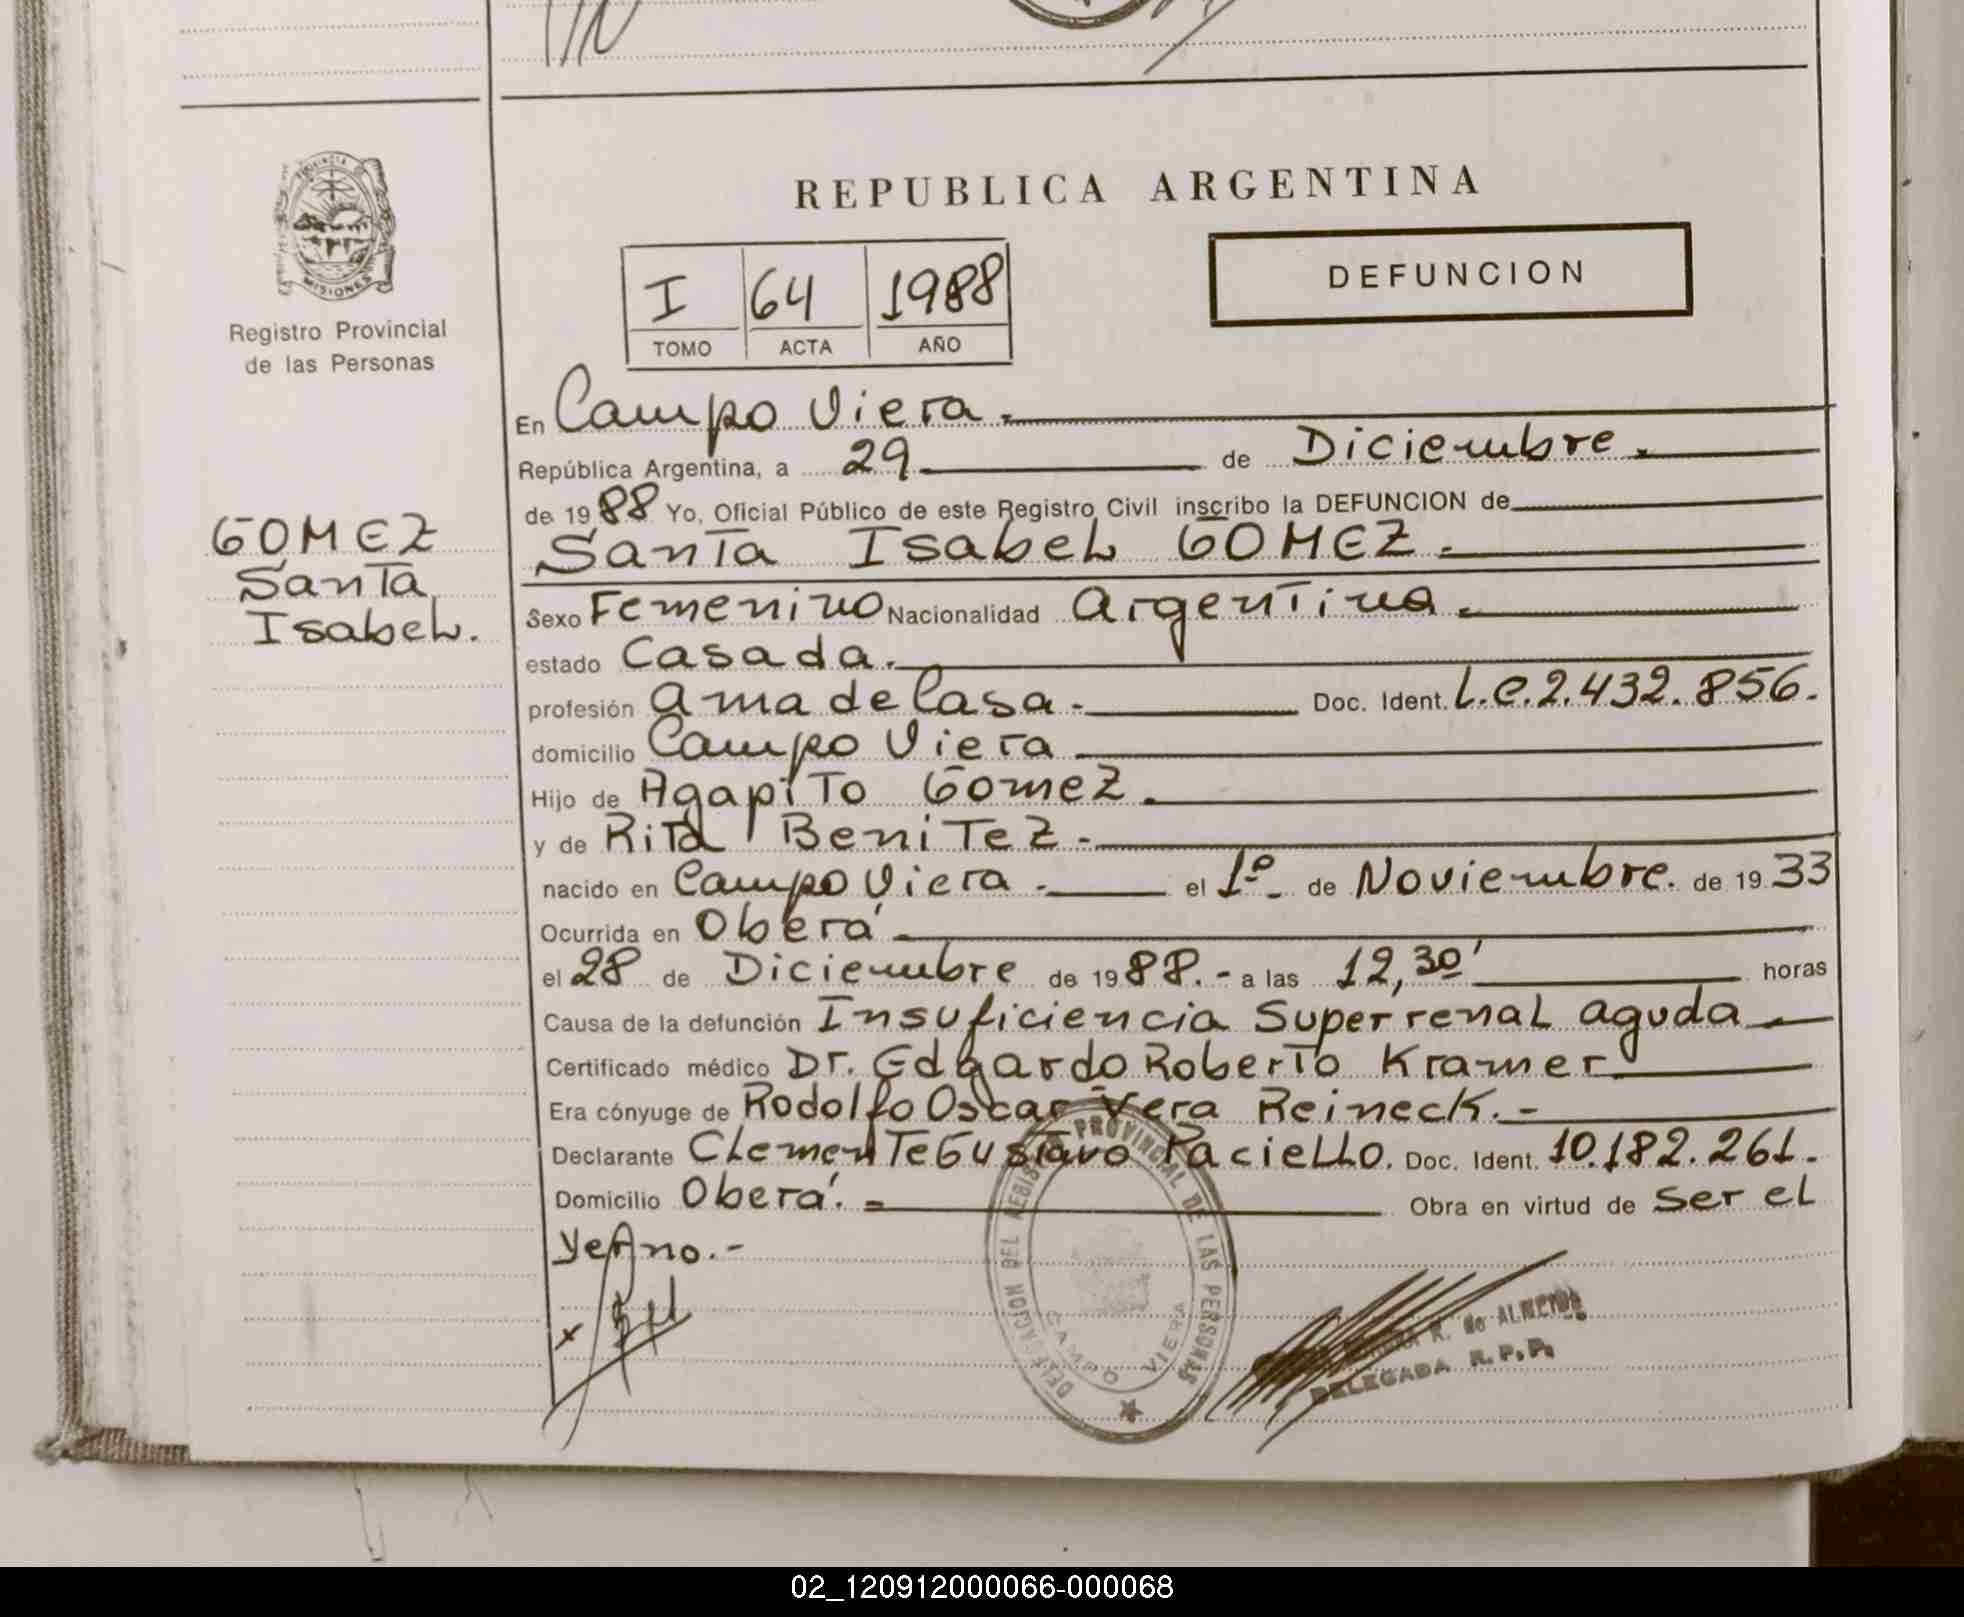 REPUBLICA ARGENTINA
PROVINCIA
MISIONES
Registro Provincial
de las Personas
I 64 1988
TOMO ACTA AÑO
DEFUNCION
GOMEZ
Santa
Isabel.
En Campo Viera.-
República Argentina, a 29 de Diciembre.
de 1988 Yo, Oficial Público de este Registro Civil inscribo la DEFUNCION de
Santa Isabel GOMEZ.-
Sexo Femenino Nacionalidad Argentina.
estado Casada.
profesión ama de Casa.- Doc. Ident. L.C.2.432.856.
domicilio Campo Viera
Hijo de Agapito Gomez.
y de Rita Benitez.-
nacido en Campo Viera.- el 1º- de Noviembre. de 1933
Ocurrida en Oberá
el 28 de Diciembre de 1988.- a las 12,30' horas
Causa de la defunción Insuficiencia Superrenal aguda
Certificado médico Dr. Edgardo Roberto Kramer
Era cónyuge de Rodolfo Oscar Vera Reineck.-
Declarante Clemente Gustavo Paciello. Doc. Ident. 10.182.261.
Domicilio Oberá.- Obra en virtud de ser el
yerno.-
DELEGACION DEL REGISTRO PROVINCIAL DE LAS PERSONAS
CAMPO VIERA
R. de ALMEIDA
DELEGADA R.P.P.
02_120912000066-000068